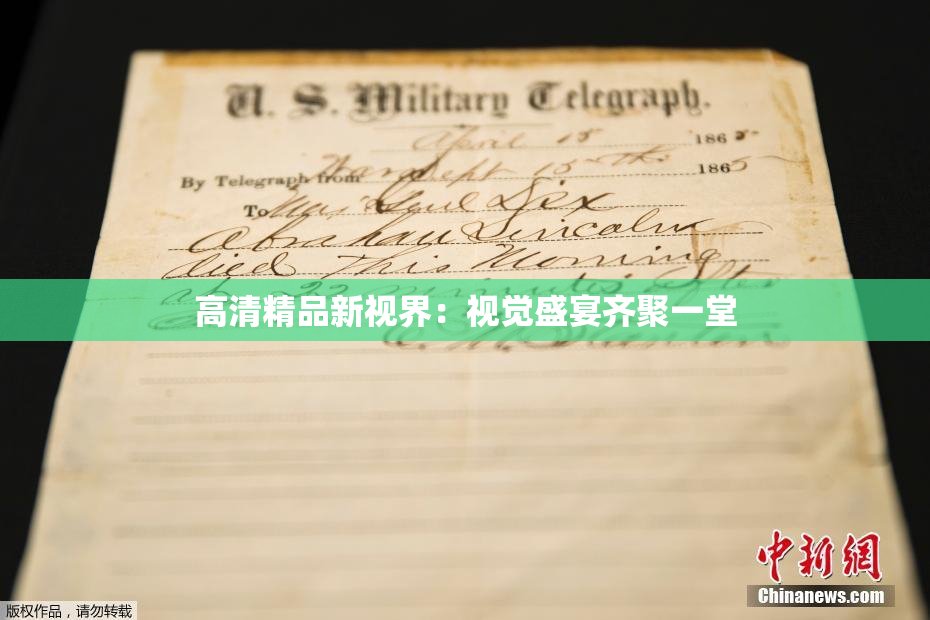 U. S. Military Telegraph.
April 15 1865
By Telegraph from War Dept 15th 1865
To Maj Genl Dix
Abraham Lincoln
died This Morning
at 22 minutes after
高清精品新视界：视觉盛宴齐聚一堂
E. M. Stanton
中新网
Chinanews.com
版权作品，请勿转载